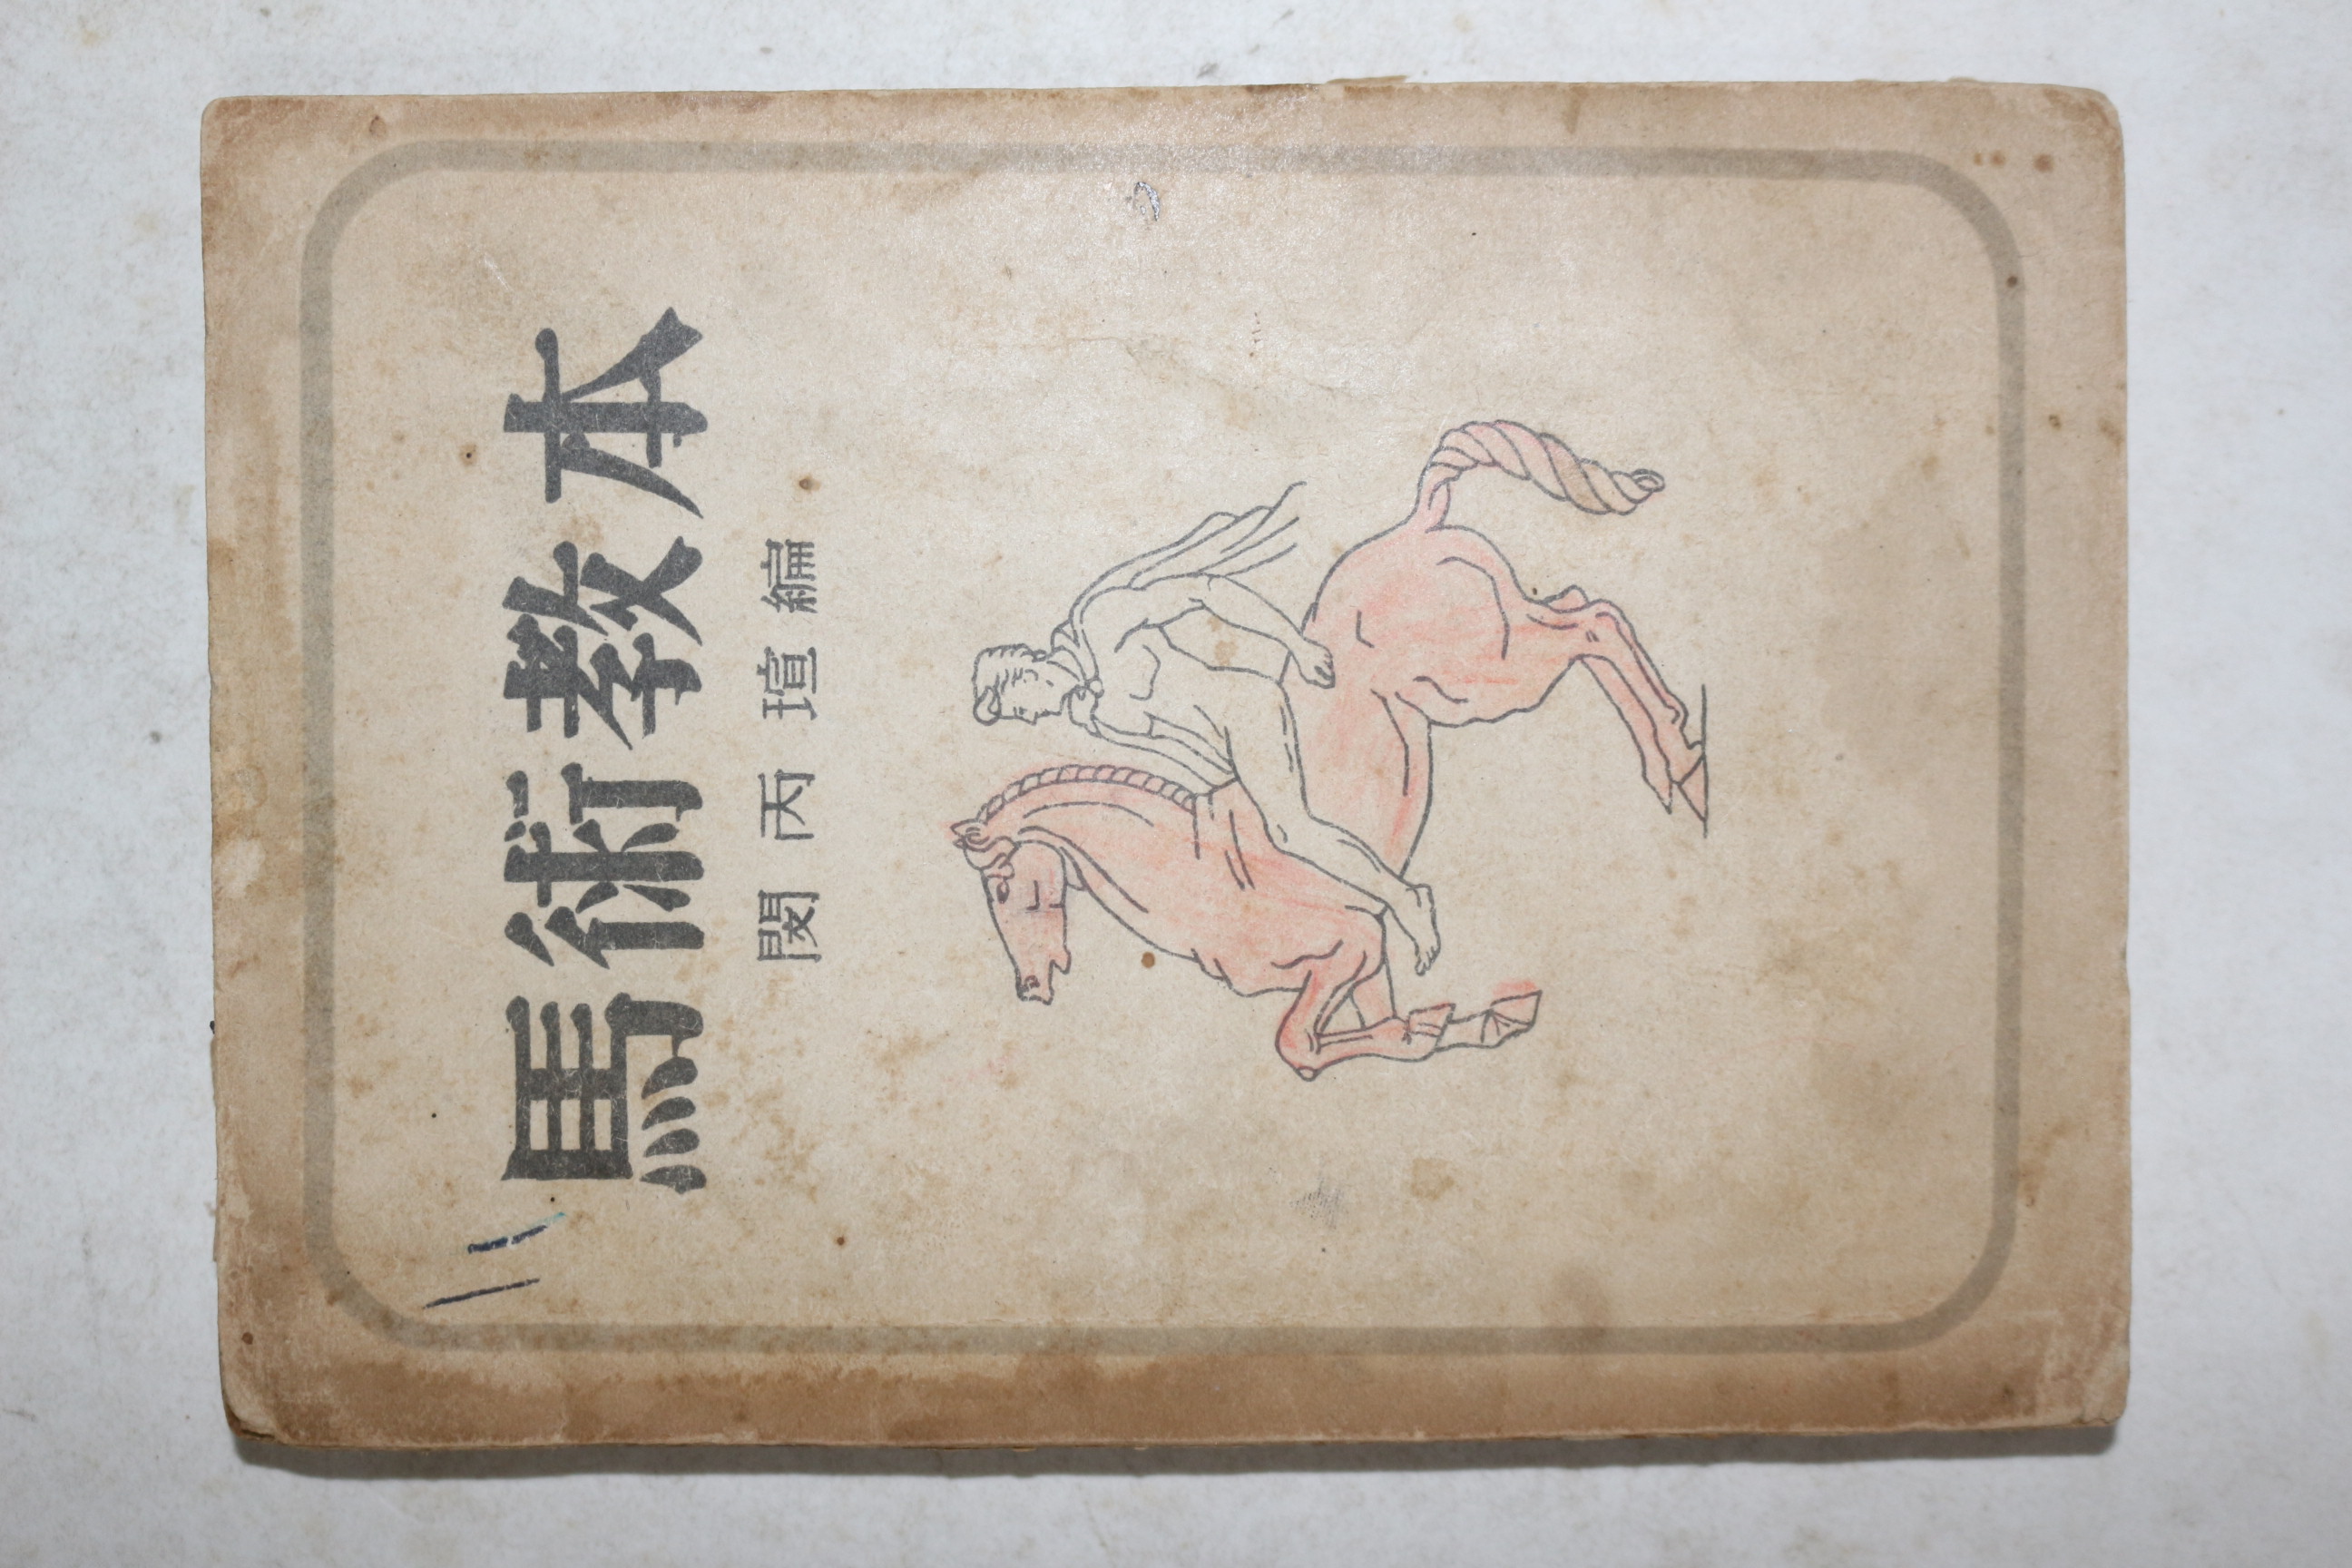 馬術教本
閔丙瑄編